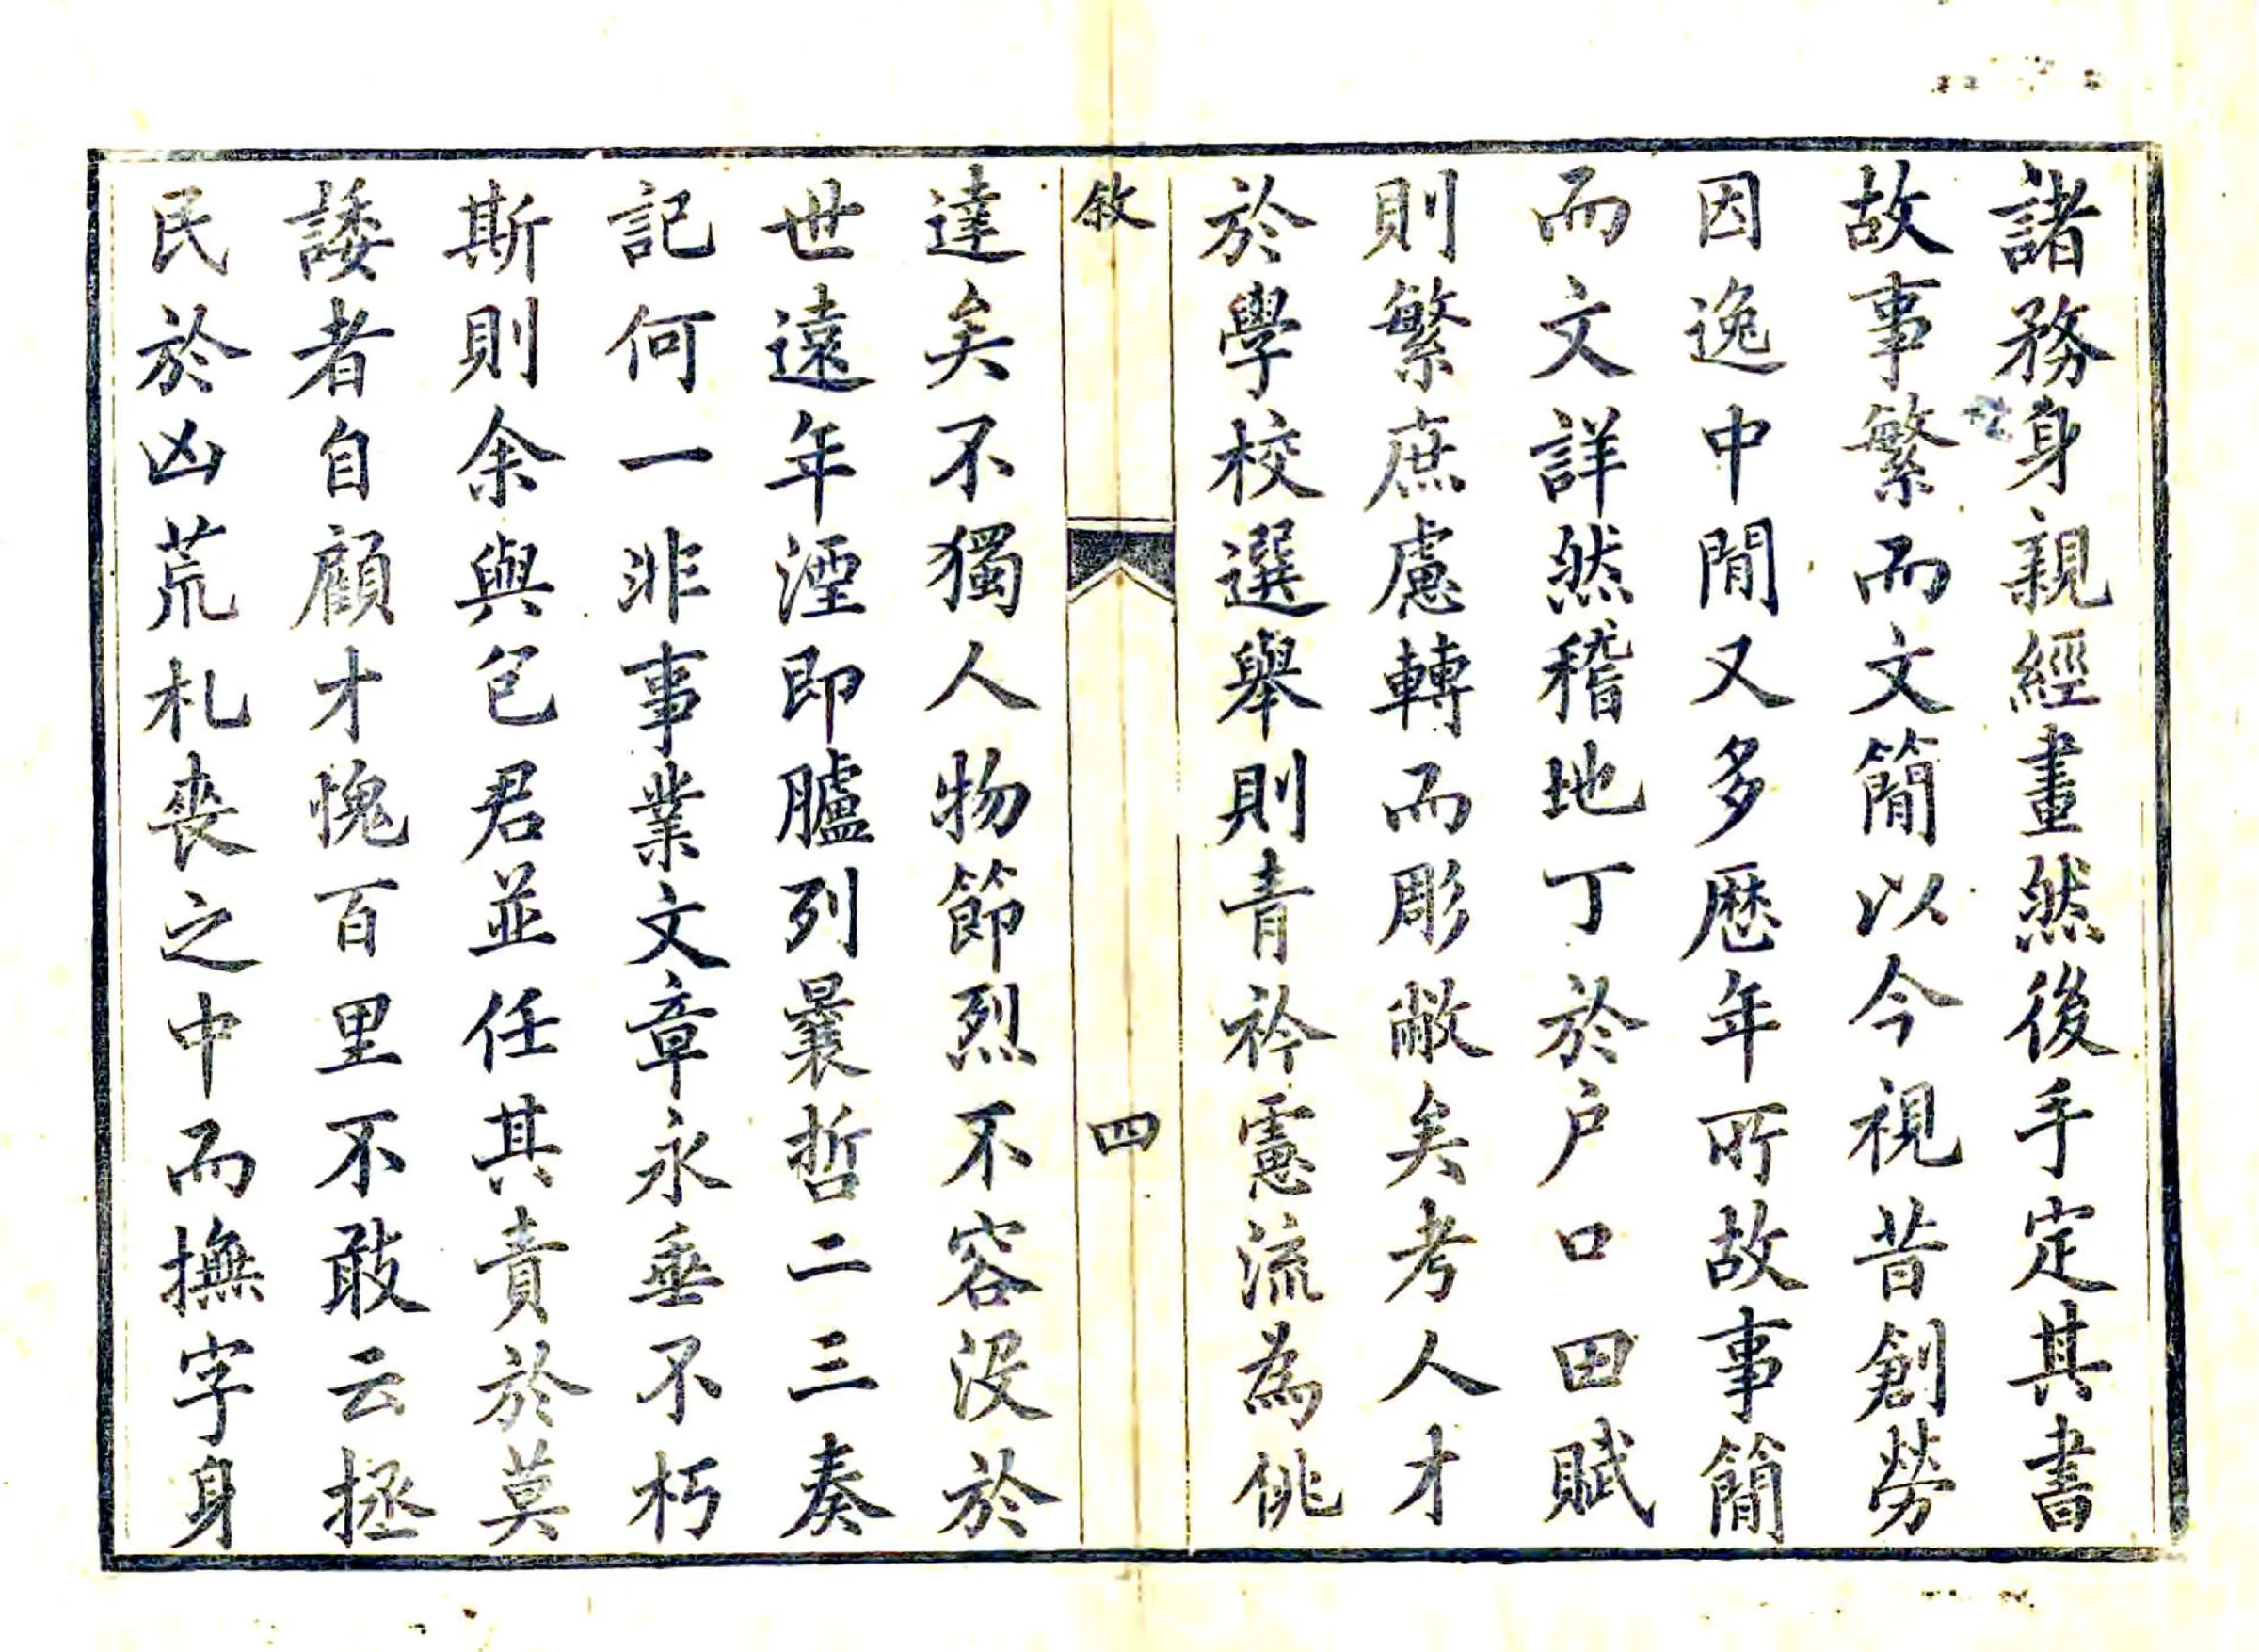 諸務身親經畫然後手定其書
故事繁而文簡以今視昔創勞
因逸中閒又多歷年所故事簡
而文詳然稽地丁於戶口田賦
則繁庶慮轉而彫敝矣考人才
於學校選舉則青衿慮流為佻
敘
四
達矣不獨人物節烈不容沒於
世遠年湮即臚列曩哲二三奏
記何一非事業文章永垂不朽
斯則余與包君並任其責於莫
諉者自顧才愧百里不敢云拯
民於凶荒札喪之中而撫字身